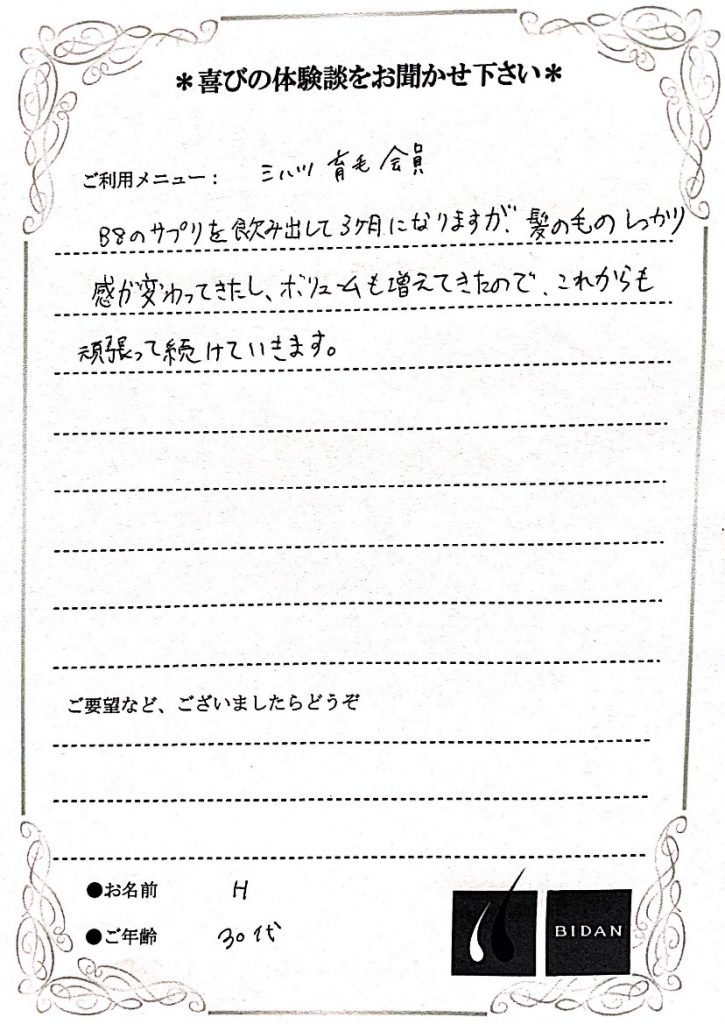 ＊喜びの体験談をお聞かせ下さい＊
ご利用メニュー： ミハツ 育毛 会員
B8のサプリを飲み出して3ヶ月になりますが、髪の毛のしっかり
感が変わってきたし、ボリュームも増えてきたので、これからも
頑張って続けていきます。
ご要望など、ございましたらどうぞ
●お名前 H
●ご年齢 30代
BIDAN